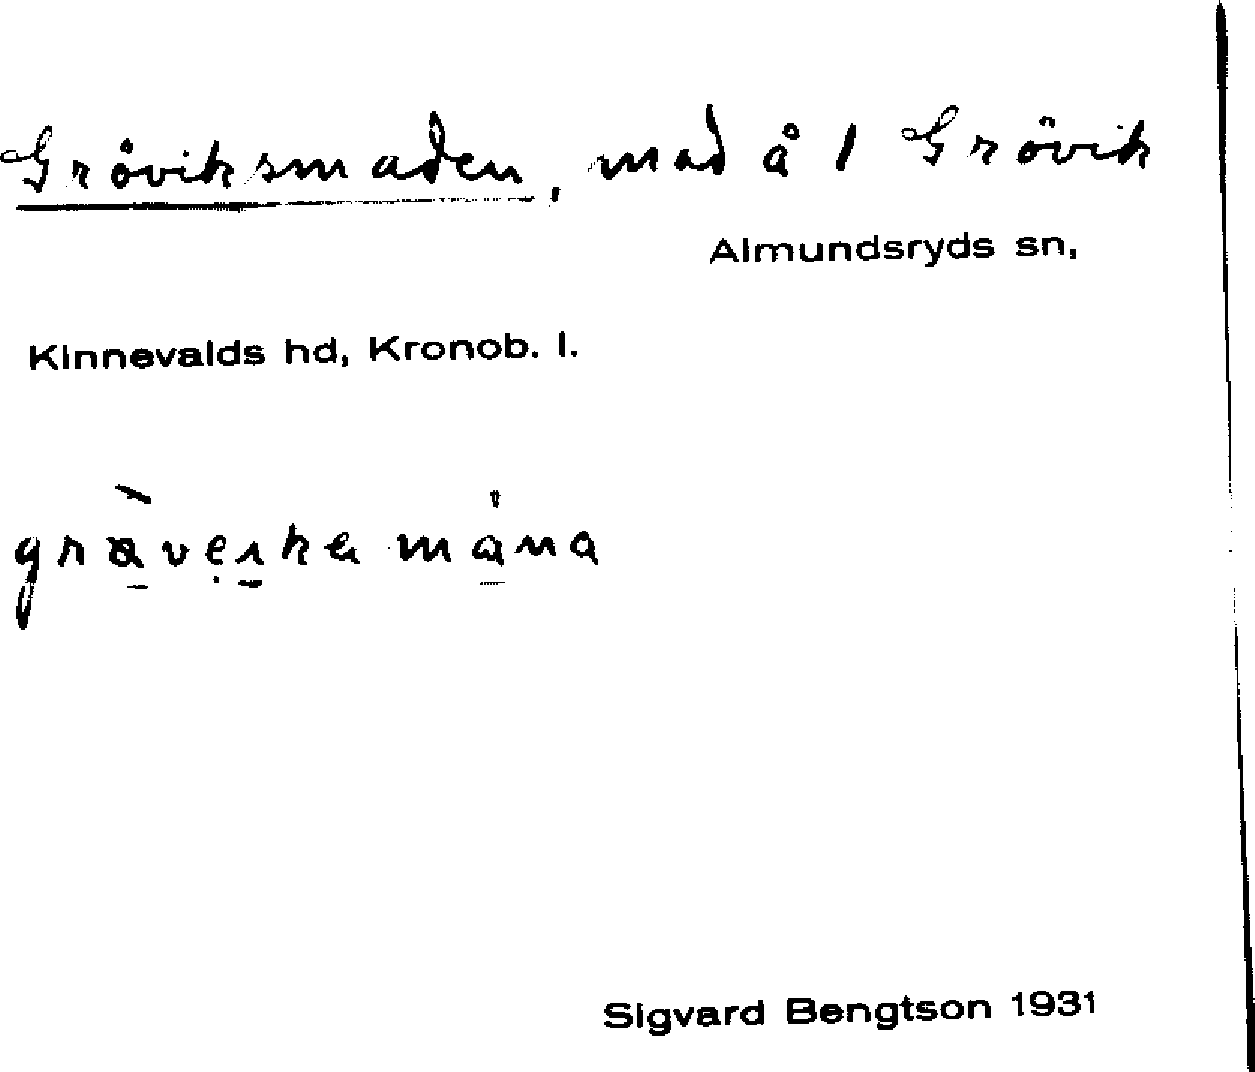 Gröviksmaden, mad å 1 Grövik
Almundsryds sn,
Kinnevalds hd, Kronob. l.
Sigvard Bengtson 1931